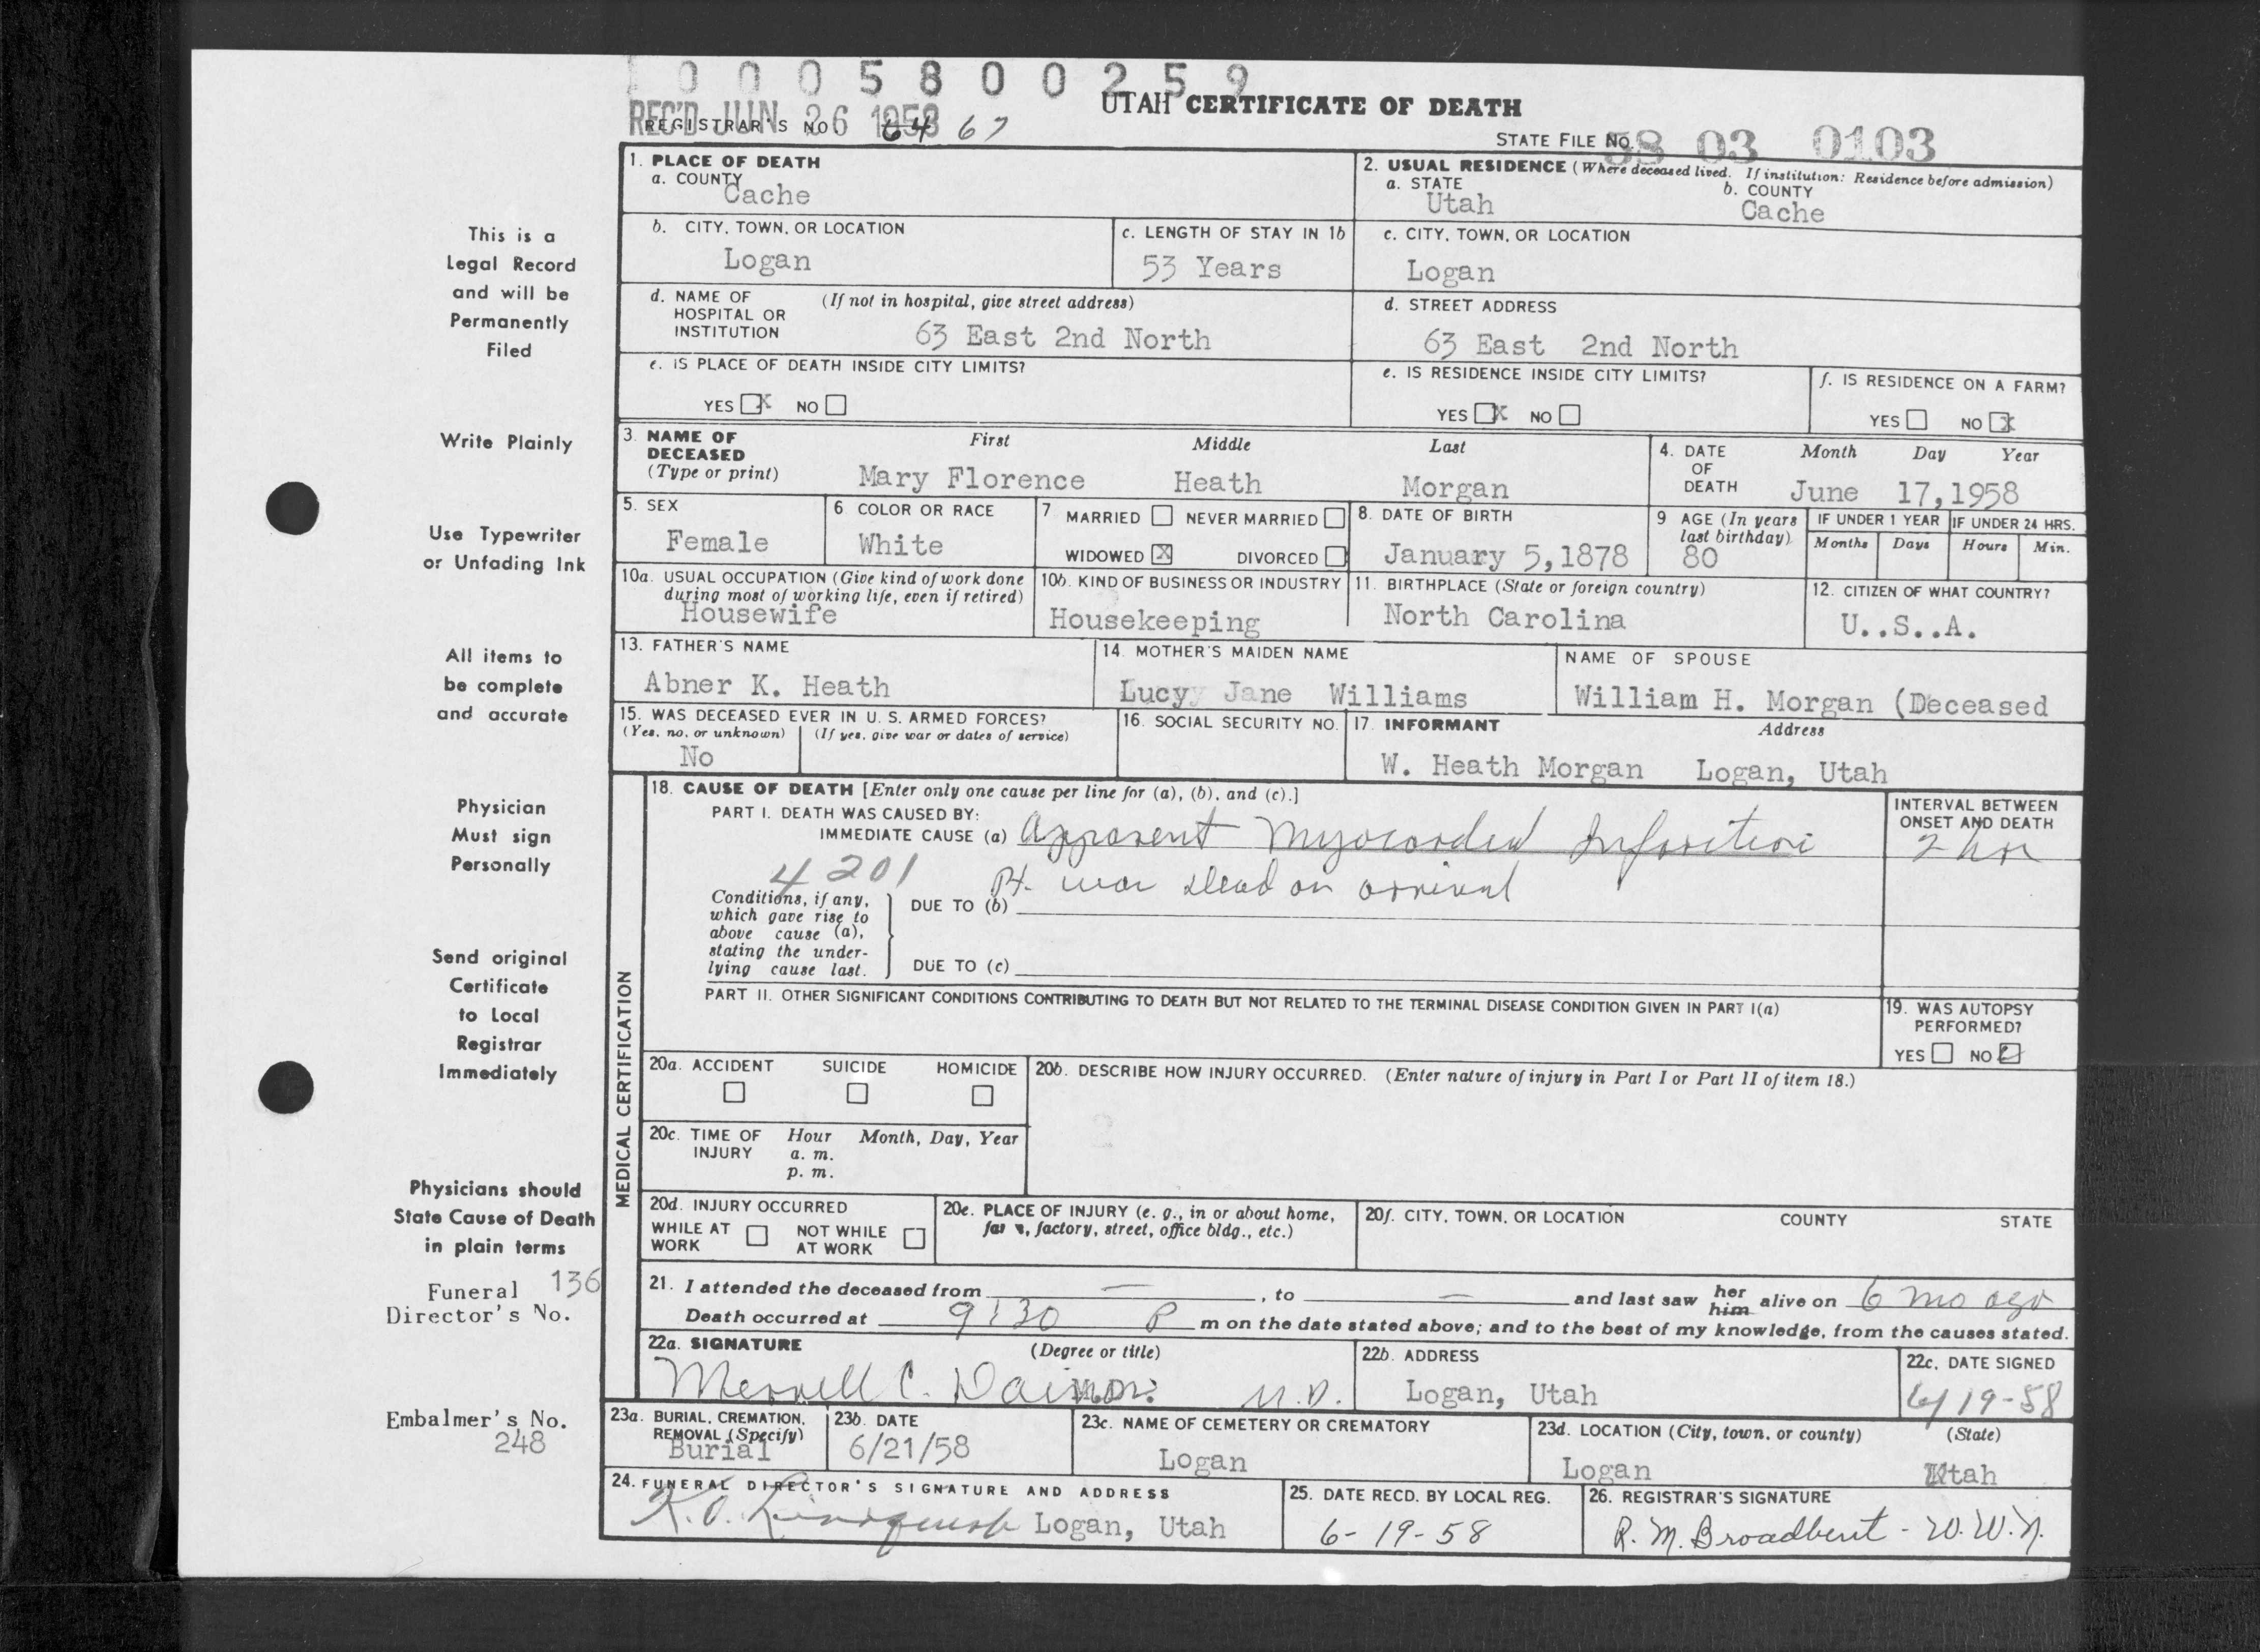 0 0 0 5 8 0 0 2 5 9
UTAH CERTIFICATE OF DEATH
REC'D JUN 26 1958
REGISTRAR'S NO. 64 67
STATE FILE NO. 58 03 0103
This is a
Legal Record
and will be
Permanently
Filed
Write Plainly
Use Typewriter
or Unfading Ink
All items to
be complete
and accurate
Physician
Must sign
Personally
Send original
Certificate
to Local
Registrar
Immediately
Physicians should
State Cause of Death
in plain terms
Funeral 136
Director's No.
Embalmer's No.
248
1. PLACE OF DEATH
a. COUNTY
Cache
2. USUAL RESIDENCE (Where deceased lived. If institution: Residence before admission)
a. STATE b. COUNTY
Utah Cache
b. CITY, TOWN, OR LOCATION
Logan
c. LENGTH OF STAY IN 1b
53 Years
c. CITY, TOWN, OR LOCATION
Logan
d. NAME OF (If not in hospital, give street address)
HOSPITAL OR
INSTITUTION
63 East 2nd North
d. STREET ADDRESS
63 East 2nd North
e. IS PLACE OF DEATH INSIDE CITY LIMITS?
YES X NO
e. IS RESIDENCE INSIDE CITY LIMITS?
YES X NO
f. IS RESIDENCE ON A FARM?
YES NO X
3. NAME OF First Middle Last
DECEASED
(Type or print) Mary Florence Heath Morgan
4. DATE Month Day Year
OF
DEATH June 17,1958
5. SEX
Female
6 COLOR OR RACE
White
7 MARRIED NEVER MARRIED
WIDOWED X DIVORCED
8. DATE OF BIRTH
January 5,1878
9 AGE (In years
last birthday)
80
IF UNDER 1 YEAR IF UNDER 24 HRS.
Months Days Hours Min.
10a. USUAL OCCUPATION (Give kind of work done
during most of working life, even if retired)
Housewife
10b. KIND OF BUSINESS OR INDUSTRY
Housekeeping
11. BIRTHPLACE (State or foreign country)
North Carolina
12. CITIZEN OF WHAT COUNTRY?
U..S..A.
13. FATHER'S NAME
Abner K. Heath
14. MOTHER'S MAIDEN NAME
Lucyy Jane Williams
NAME OF SPOUSE
William H. Morgan (Deceased
15. WAS DECEASED EVER IN U. S. ARMED FORCES?
(Yes, no, or unknown) (If yes, give war or dates of service)
No
16. SOCIAL SECURITY NO.
17. INFORMANT Address
W. Heath Morgan Logan, Utah
MEDICAL CERTIFICATION
18. CAUSE OF DEATH [Enter only one cause per line for (a), (b), and (c).]
PART I. DEATH WAS CAUSED BY:
IMMEDIATE CAUSE (a) Apparent Myocardial Infarction
INTERVAL BETWEEN
ONSET AND DEATH
2 hr
4201
Pt. was dead on arrival
Conditions, if any,
which gave rise to
above cause (a),
stating the under-
lying cause last.
DUE TO (b)
DUE TO (c)
PART II. OTHER SIGNIFICANT CONDITIONS CONTRIBUTING TO DEATH BUT NOT RELATED TO THE TERMINAL DISEASE CONDITION GIVEN IN PART I(a)
19. WAS AUTOPSY
PERFORMED?
YES NO
20a. ACCIDENT SUICIDE HOMICIDE
20b. DESCRIBE HOW INJURY OCCURRED. (Enter nature of injury in Part I or Part II of item 18.)
20c. TIME OF Hour Month, Day, Year
INJURY a. m.
p. m.
20d. INJURY OCCURRED
WHILE AT NOT WHILE
WORK AT WORK
20e. PLACE OF INJURY (e. g., in or about home,
farm, factory, street, office bldg., etc.)
20f. CITY, TOWN, OR LOCATION COUNTY STATE
21. I attended the deceased from — , to — and last saw her him alive on 6 mo ago
Death occurred at 9:30 P m on the date stated above; and to the best of my knowledge, from the causes stated.
22a. SIGNATURE (Degree or title)
Merrell C. Daines M.D. M.D.
22b. ADDRESS
Logan, Utah
22c. DATE SIGNED
6/19-58
23a. BURIAL, CREMATION,
REMOVAL (Specify)
Burial
23b. DATE
6/21/58
23c. NAME OF CEMETERY OR CREMATORY
Logan
23d. LOCATION (City, town, or county) (State)
Logan Utah
24. FUNERAL DIRECTOR'S SIGNATURE AND ADDRESS
K.O. Lindquist Logan, Utah
25. DATE RECD. BY LOCAL REG.
6-19-58
26. REGISTRAR'S SIGNATURE
R. M. Broadbent - W.W.N.